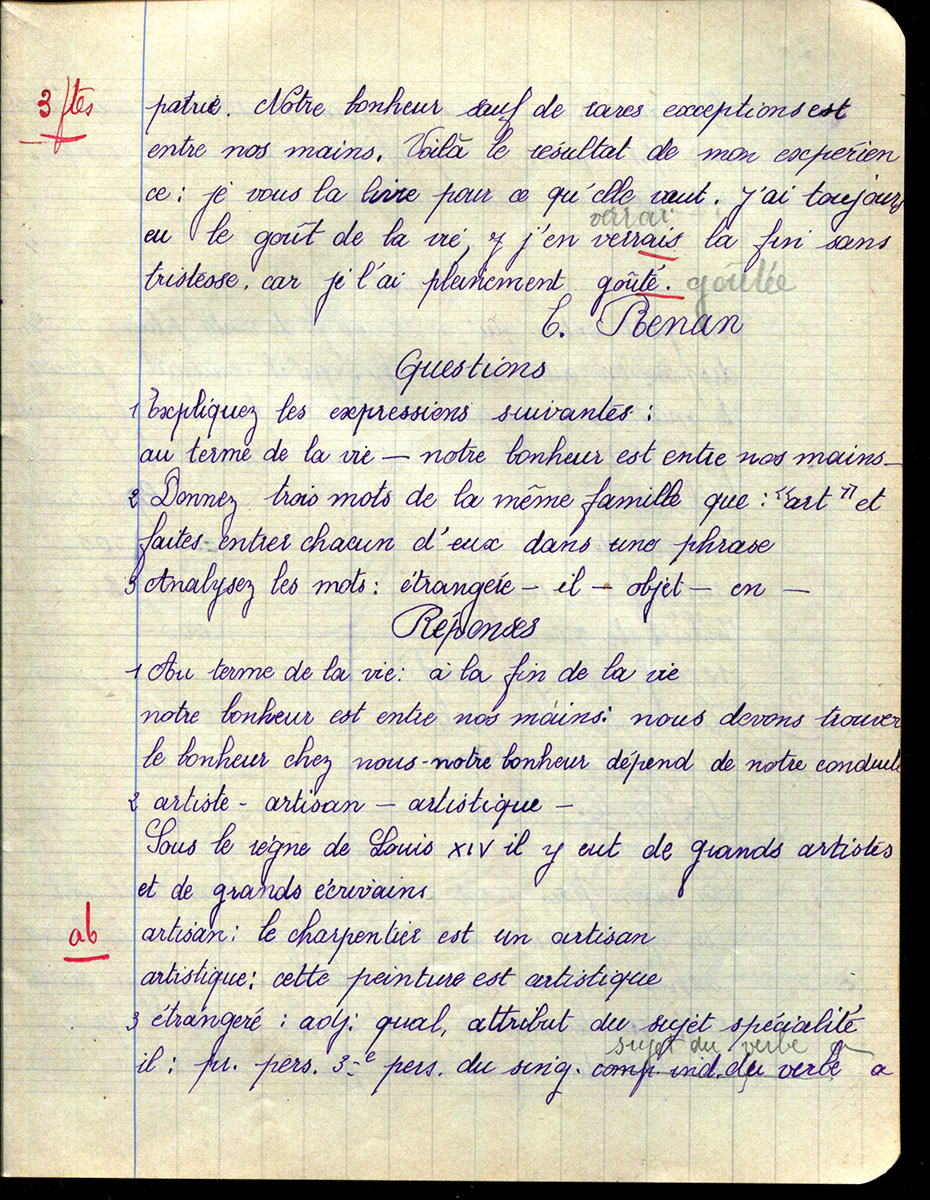 3 ftes
patrie. Notre bonheur sauf de rares exceptions est
entre nos mains. Voilà le résultat de mon expérien
ce : je vous la livre pour ce qu'elle vaut. J'ai toujours
verrai
eu le goût de la vie, j'en verrais la fin sans
tristesse. car je l'ai pleinement goûté. goûtée
E. Renan
Questions
1 Expliquez les expressions suivantes :
au terme de la vie — notre bonheur est entre nos mains —
2 Donnez trois mots de la même famille que : "art" et
faites entrer chacun d'eux dans une phrase
3 Analysez les mots : étrangère — il — objet — en —
Réponses
1 Au terme de la vie : à la fin de la vie
notre bonheur est entre nos mains : nous devons trouver
le bonheur chez nous - notre bonheur dépend de notre conduite
2 artiste - artisan — artistique —
Sous le règne de Louis XIV il y eut de grands artistes
et de grands écrivains
ab
artisan : le charpentier est un artisan
artistique : cette peinture est artistique
3 étrangeré : adj. qual, attribut du sujet spécialité
sujet du verbe a
il : pr. pers. 3e pers. du sing. comp. ind. du verbe a